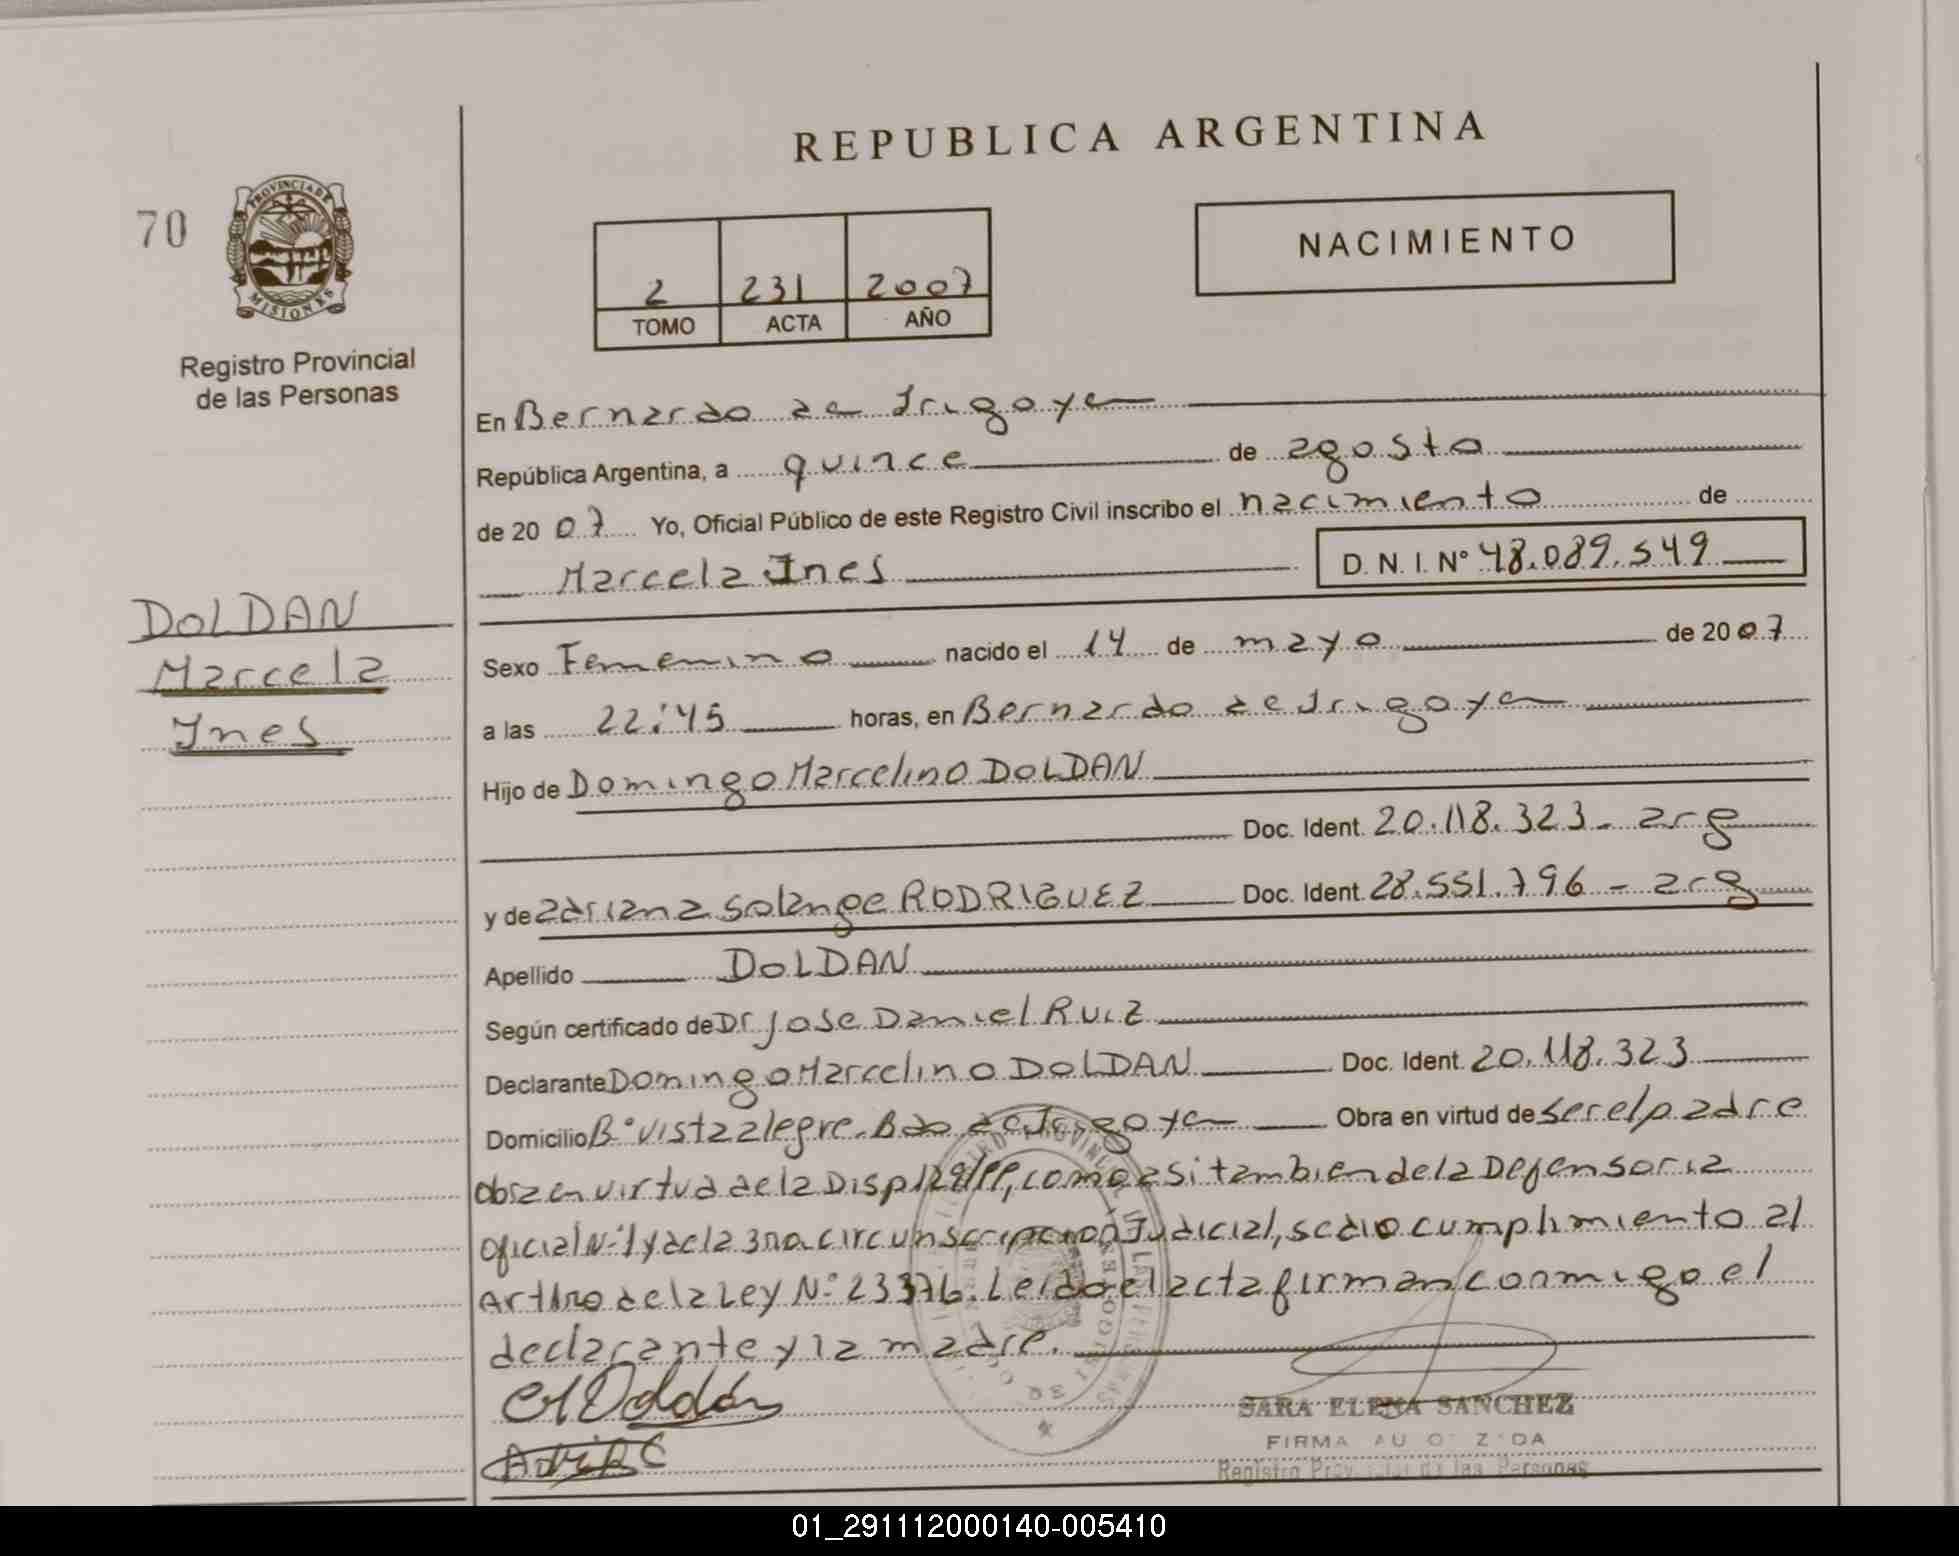 REPUBLICA ARGENTINA
70
PROVINCIA DE
MISIONES
Registro Provincial
de las Personas
2 231 2007
TOMO ACTA AÑO
NACIMIENTO
En Bernardo de Irigoyen
República Argentina, a quince de agosto
de 20 07 Yo, Oficial Público de este Registro Civil inscribo el nacimiento de
Marcela Ines
D. N. I. N° 48.089.549
DOLDAN
Marcela
Ines
Sexo Femenino nacido el 14 de mayo de 2007
a las 22:45 horas, en Bernardo de Irigoyen
Hijo de Domingo Marcelino DOLDAN
Doc. Ident. 20.118.323 - arg
y de adriana solange RODRIGUEZ Doc. Ident. 28.551.796 - arg
Apellido DOLDAN
Según certificado de Dr Jose Daniel Ruiz
Declarante Domingo Marcelino DOLDAN Doc. Ident. 20.118.323
Domicilio B° vista alegre. Bdo de Irigoyen Obra en virtud de ser el padre
obra en virtud de la Disp como asi tambien de la Defensoria
oficial N° 1 y de la 3ra circunscripcion Judicial, se dio cumplimiento al
Art de la Ley N° Leido el acta firman conmigo el
declarante y la madre.
SARA ELENA SANCHEZ
FIRMA AU O Z DA
Registro Prov de las Personas
01_291112000140-005410